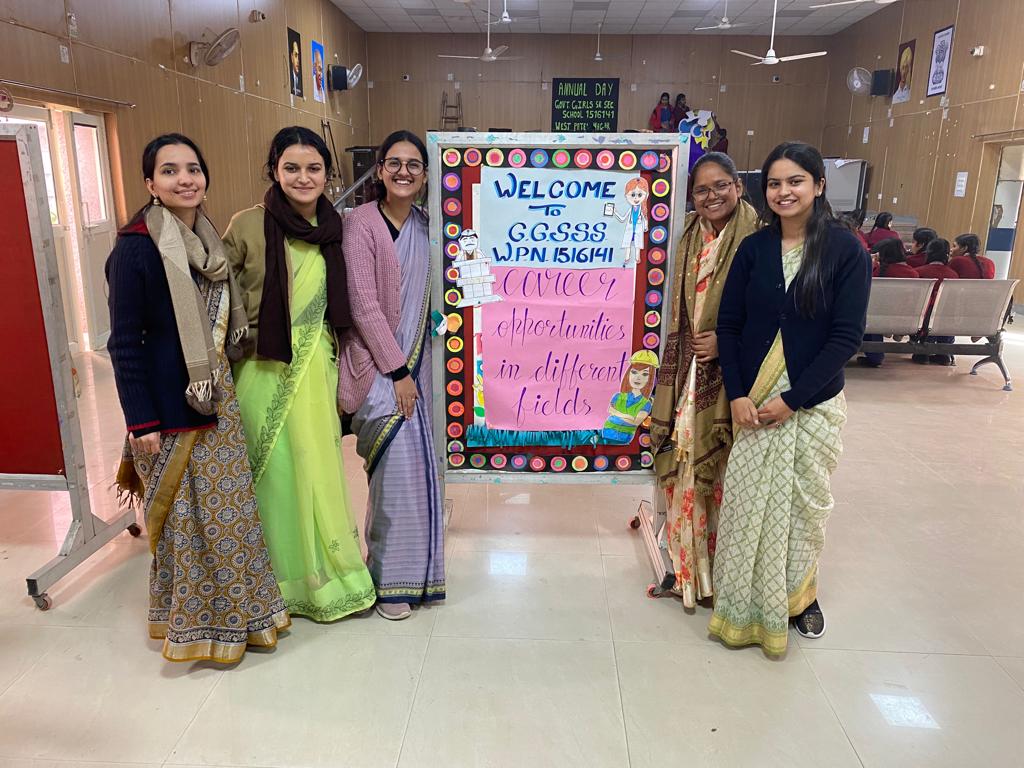 ANNUAL DAY
GOVT GIRLS SR SEC
SCHOOL 1516141
WEST PATEL NAGAR
WELCOME
TO
G.G.S.S.S
W.P.N. 1516141
career
opportunities
in different
fields